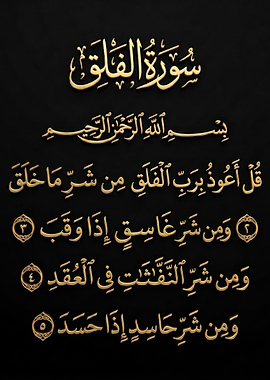 سُورَةُ الفَلَقِ
بِسْمِ اللَّهِ الرَّحْمَٰنِ الرَّحِيمِ
قُلْ أَعُوذُ بِرَبِّ ٱلْفَلَقِ مِن شَرِّ مَا خَلَقَ
﴿٢﴾ وَمِن شَرِّ غَاسِقٍ إِذَا وَقَبَ ﴿٣﴾
وَمِن شَرِّ ٱلنَّفَّٰثَٰتِ فِى ٱلْعُقَدِ ﴿٤﴾
وَمِن شَرِّ حَاسِدٍ إِذَا حَسَدَ ﴿٥﴾